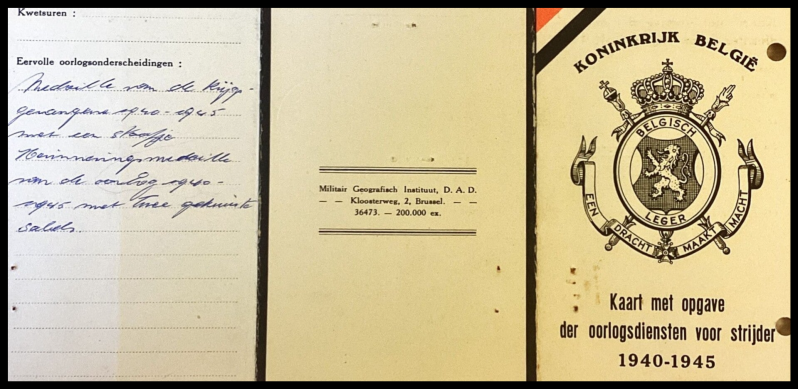 Kwetsuren :
Eervolle oorlogsonderscheidingen :
Medaille van de Krijgs-
gevangene 1940-1945
met een staafje
Herinneringsmedaille
van de oorlog 1940-
1945 met twee gekruiste
sabels.
Militair Geografisch Instituut, D. A. D.
— — Kloosterweg, 2, Brussel. — —
36473. — 200.000 ex.
KONINKRIJK BELGIË
BELGISCH
LEGER
EEN DRACHT MAAKT MACHT
Kaart met opgave
der oorlogsdiensten voor strijder
1940-1945